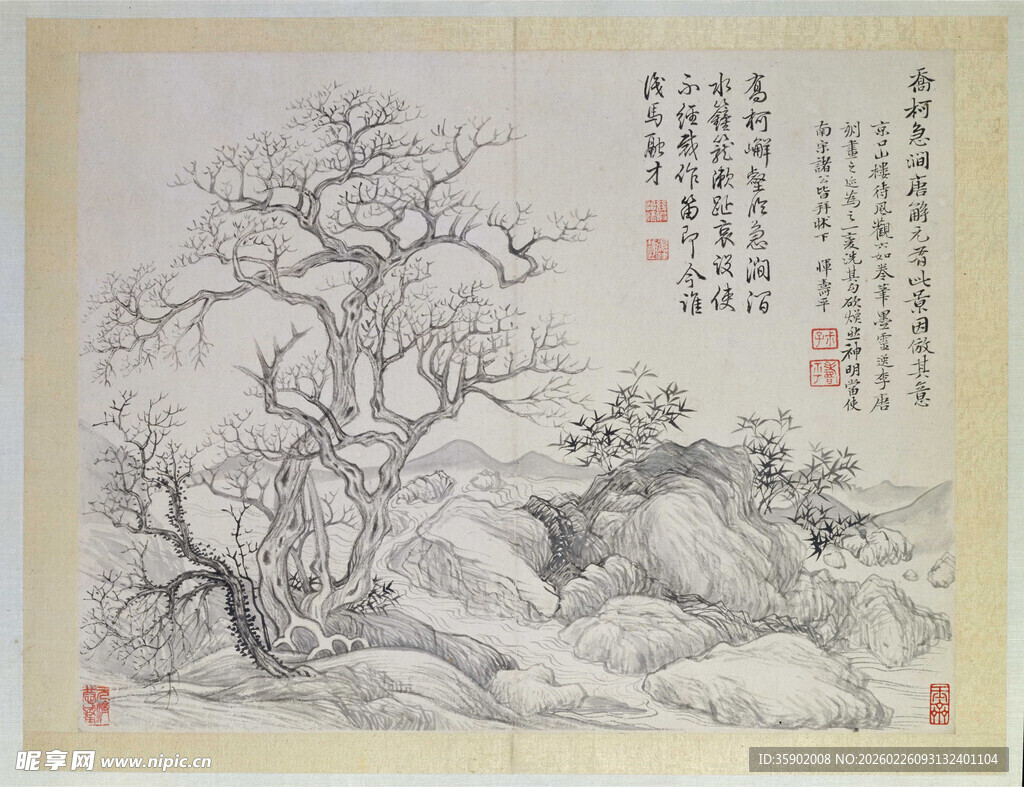 喬柯急澗唐解元有此景因倣其意
京口山樓待風觀六如卷筆墨靈逸李唐
刻畫之迹為之一變洗其勾斫煥然神明當使
南宋諸公皆拜牀下 惲壽平
高柯嶰壑臨急澗
水籟籠漱趾哀設使
不經裁作笛即今誰
識馬融才
昵享网 www.nipic.cn
ID:35902008 NO:20260226093132401104